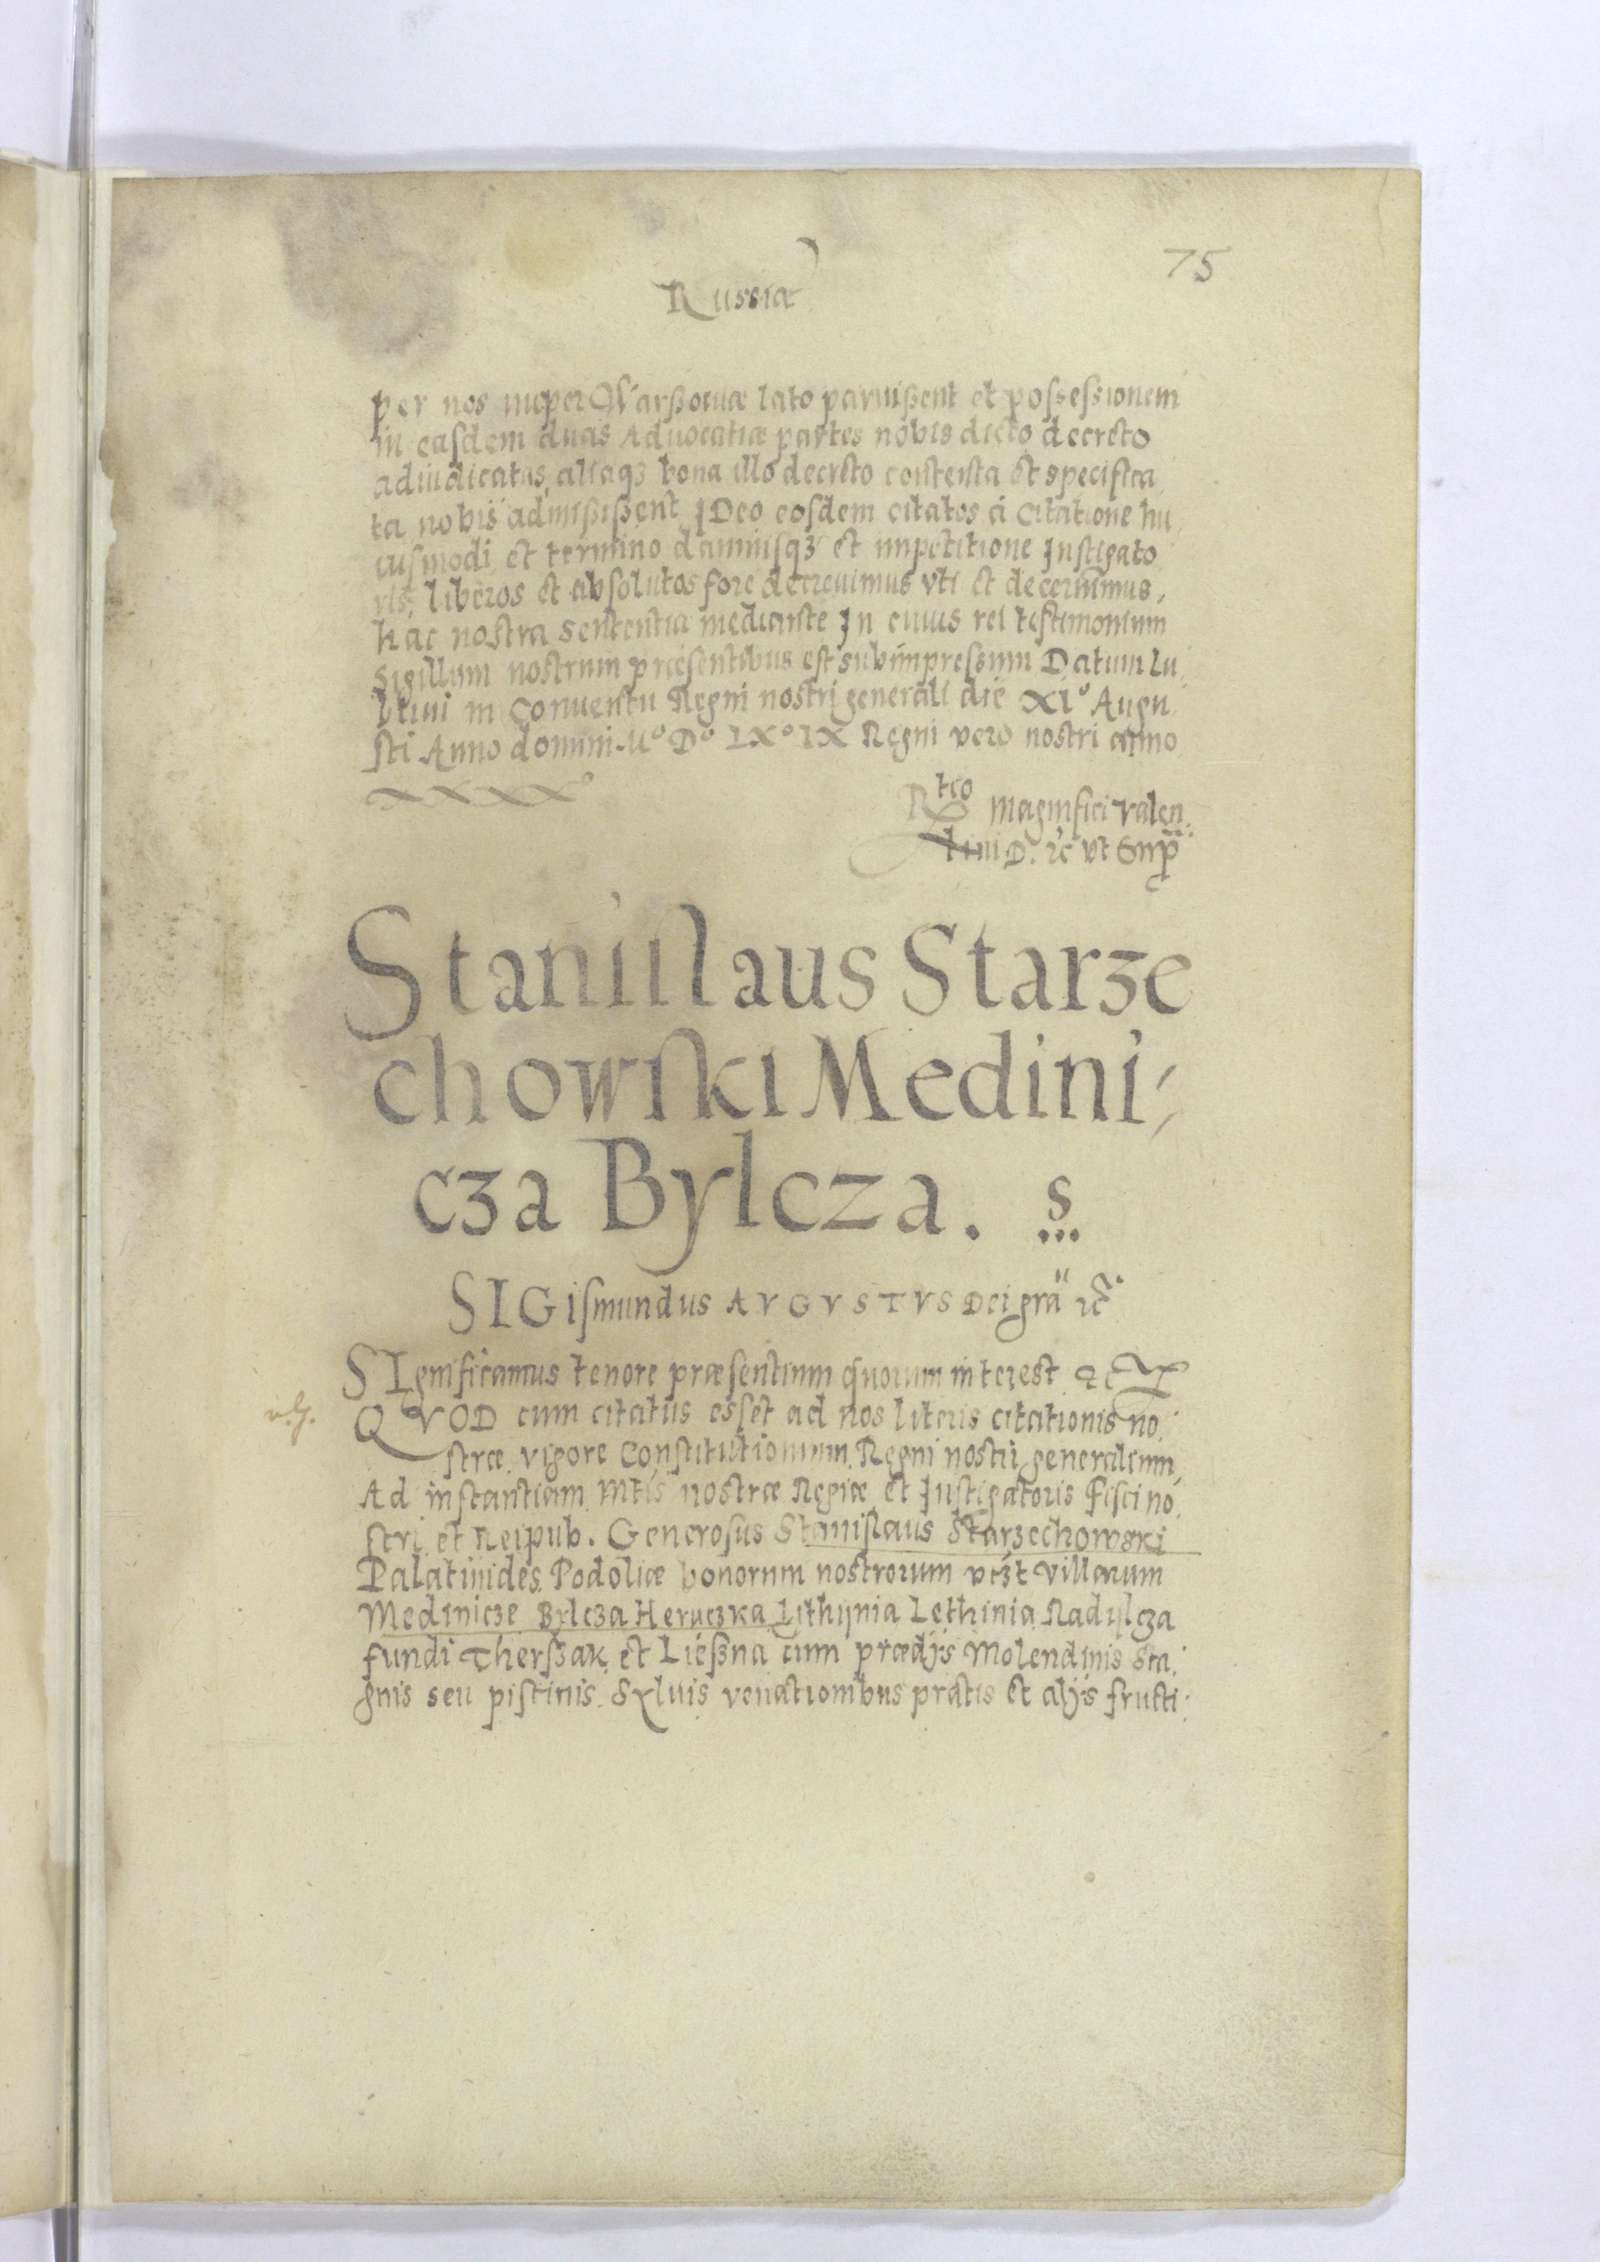 75
Russia
per nos nuper Warßouiæ lato paruißent et possessionem
in easdem duas Aduocatiæ partes nobis dicto decreto
adiudicatas, aliaqȝ bona illo decreto contenta et specifica,
ta nobis admißißent, IDeo eosdem citatos a citatione hu,
iusmodi et termino damnisqȝ et impetitione Instigato
ris, liberos et absolutos fore decreuimus vti et decernimus,
hac nostra sententia mediante In cuius rei testimonium
Sigillum nostrum præsentibus est subimpressum Datum Lu,
blini in Conuentu Regni nostri generali die XIº Augu
sti Anno domini Mº Dº LXº IX Regni vero nostri anno
XXXXº
Rtio Magnifici Valen,
tini D. ꝛc vt Supꝛ
Stanislaus Starze
chowski Medini,
cza Bylcza. s
SIGismundus AVGVSTVS Dei gra ꝛc
SIgnificamus tenore præsentium quorum interest ꝛc
QVOD cum citatus esset ad nos literis citationis no,
stræ vigore Constitutionum Regni nostri generalium,
Ad instantiam Mtis nostræ Regiæ et Instigatoris Fisci no,
stri et Reipub. Generosus Stanislaus Starzechowski
Palatinides Podoliæ bonorum nostrorum vczt villarum
Medinicze Bylcza Heruczka Lithynia Lethinia Radylcza
fundi Therszak et Ließna cum prædijs Molendinis Sta,
gnis seu piscinis Syluis venationibus pratis et alijs fructi,